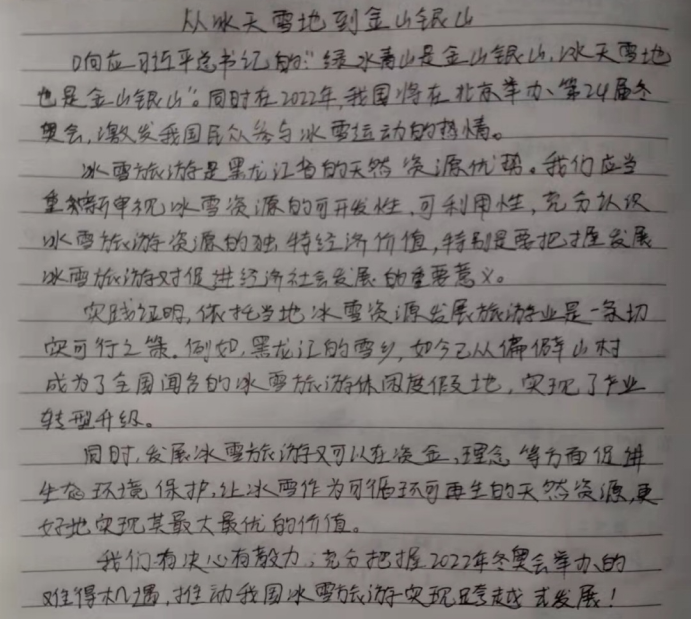 从冰天雪地到金山银山
响应习近平总书记的:“绿水青山是金山银山,冰天雪地
也是金山银山”。同时在2022年,我国将在北京举办、第24届冬
奥会,激发我国民众参与冰雪运动的热情。
冰雪旅游是黑龙江省的天然资源优势。我们应当
重新审视冰雪资源的可开发性、可利用性,充分认识
冰雪旅游资源的独特经济价值,特别是要把握发展
冰雪旅游对促进经济社会发展的重要意义。
实践证明,依托当地冰雪资源发展旅游业是一条切
实可行之策。例如,黑龙江的雪乡,如今已从偏僻山村
成为了全国闻名的冰雪旅游休闲度假地,实现了产业
转型升级。
同时,发展冰雪旅游又可以在资金、理念等方面促进
生态环境保护,让冰雪作为可循环可再生的天然资源,更
好地实现其最大最优的价值。
我们有决心有毅力,充分把握2022年冬奥会举办的
难得机遇,推动我国冰雪旅游实现跨越式发展!